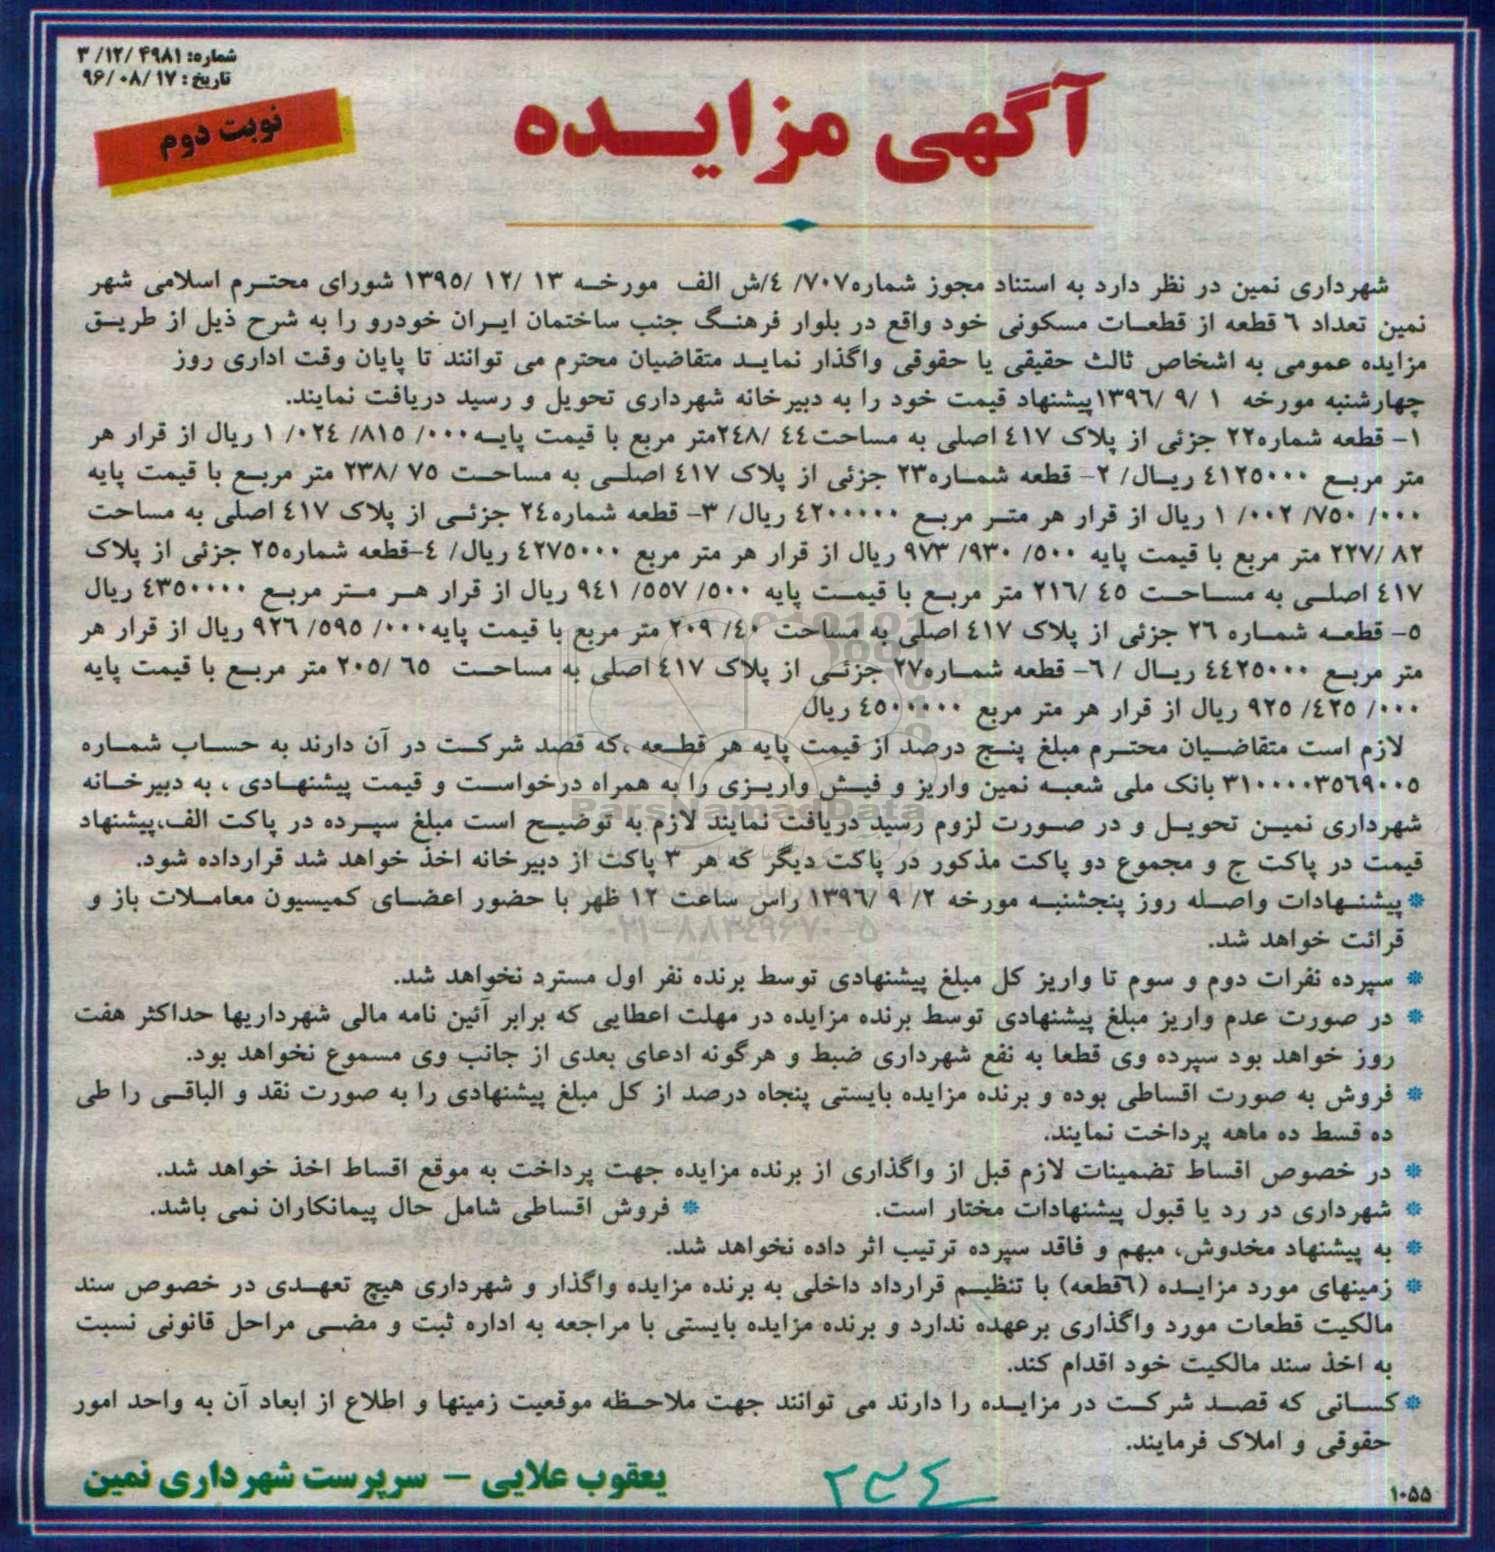 شماره: ۴۹۸۱/ ۱۲/ ۳
تاریخ: ۱۷/ ۰۸/ ۹۶
نوبت دوم
آگهی مزایـــده
شهرداری نمین در نظر دارد به استناد مجوز شماره۷۰۷/ ٤/ش الف مورخـه ۱۳ /۱۲ /۱۳۹۵ شورای محتـرم اسلامی شهر
نمین تعداد ٦ قطعه از قطعـات مسکونی خود واقع در بلوار فرهنـگ جنب ساختمان ایـران خودرو را به شرح ذیل از طریـق
مزایده عمومی به اشخاص ثالث حقیقی یا حقوقی واگذار نمایـد متقاضیان محترم می توانند تا پایان وقت اداری روز
چهارشنبه مورخه ۱ /۹ /۱۳۹٦پیشنهاد قیمت خود را به دبیرخانه شهرداری تحویل و رسید دریافت نمایند.
۱- قطعه شماره۲۲ جزئی از پلاک ٤۱۷ اصلی به مساحت٤٤ /۲٤۸متر مربع با قیمت پایـه۰۰۰/ ۸۱۵/ ۰۲٤/ ۱ ریال از قرار هر
متر مربـع ٤۱۲۵۰۰۰ ریـال/ ۲- قطعه شمـاره۲۳ جزئی از پلاک ٤۱۷ اصلـی به مساحـت ۷۵ /۲۳۸ متر مربـع با قیمت پایه
۰۰۰/ ۷۵۰/ ۰۰۲/ ۱ ریال از قرار هر متـر مربـع ٤۲۰۰۰۰۰ ریال/ ۳- قطعه شماره۲٤ جزئـی از پلاک ٤۱۷ اصلی به مساحت
۸۲ /۲۲۷ متر مربع با قیمت پایه ۵۰۰/ ۹۳۰/ ۹۷۳ ریال از قرار هر متر مربع ٤۲۷۵۰۰۰ ریال/ ٤-قطعه شماره۲۵ جزئی از پلاک
٤۱۷ اصلـی به مسـاحـت ٤۵ /۲۱٦ متر مربـع با قیمـت پایه ۵۰۰/ ۵۵۷/ ۹٤۱ ریال از قرار هـر مـتر مربـع ٤۳۵۰۰۰۰ ریال
۵- قطعـه شمـاره ۲٦ جزئی از پلاک ٤۱۷ اصلی به مساحت ٤۰/ ۲۰۹ متر مربع با قیمت پایه۰۰۰/ ۵۹۵/ ۹۲٦ ریال از قرار هر
متر مربـع ٤٤۲۵۰۰۰ ریـال / ٦- قطعه شمـاره۲۷ جزئـی از پلاک ٤۱۷ اصلی به مساحـت ٦۵ /۲۰۵ متر مربـع با قیمت پایه
۰۰۰/ ٤۲۵/ ۹۲۵ ریال از قرار هر متر مربع ٤۵۰۰۰۰۰ ریال
لازم است متقاضـیان محتـرم مبلغ پنـج درصد از قیمت پایه هر قطـعه ،که قصد شرکـت در آن دارند به حسـاب شمـاره
۳۱۰۰۰۰۳۵٦۹۰۰۵ بانک ملی شعبـه نمین واریز و فیـش واریـزی را به همراه درخواسـت و قیمت پیشنهـادی ، به دبیرخـانه
شهرداری نمیـن تحویـل و در صـورت لزوم رسید دریافت نمایند لازم به توضیـح است مبلغ سپـرده در پاکت الف،پیشنهاد
قیمت در پاکت ج و مجموع دو پاکت مذکور در پاکت دیگر که هر ۳ پاکت از دبیرخانه اخذ خواهد شد قرارداده شود.
* پیشنـهادات واصـله روز پنجشنبـه مورخه ۲/ ۹ /۱۳۹٦ راس ساعت ۱۲ ظهر با حضور اعضـای کمیسیون معامـلات باز و
قرائت خواهد شد.
* سپرده نفرات دوم و سوم تا واریز کل مبلغ پیشنهادی توسط برنده نفر اول مسترد نخواهد شد.
* در صورت عدم واریز مبلغ پیشنهادی توسط برنده مزایده در مهلت اعطایی که برابر آئین نامه مالی شهرداریها حداکثر هفت
روز خواهد بود سپرده وی قطعا به نفع شهرداری ضبط و هرگونه ادعای بعدی از جانب وی مسموع نخواهد بود.
* فروش به صورت اقساطی بوده و برنده مزایده بایستی پنجاه درصد از کل مبلغ پیشنهادی را به صورت نقد و الباقـی را طی
ده قسط ده ماهه پرداخت نمایند.
* در خصوص اقساط تضمینات لازم قبل از واگذاری از برنده مزایده جهت پرداخت به موقع اقساط اخذ خواهد شد.
* شهرداری در رد یا قبول پیشنهادات مختار است. * فروش اقساطی شامل حال پیمانکاران نمی باشد.
* به پیشنهاد مخدوش، مبهم و فاقد سپرده ترتیب اثر داده نخواهد شد.
* زمینهای مورد مزایـده (٦قطعه) با تنظیـم قرارداد داخلی به برنده مزایده واگذار و شهرداری هیچ تعهـدی در خصوص سند
مالکیت قطعات مورد واگذاری برعهده ندارد و برنده مزایده بایستی با مراجعه به اداره ثبت و مضـی مراحل قانونی نسبت
به اخذ سند مالکیت خود اقدام کند.
* کسـانی که قصـد شرکـت در مزایـده را دارند می توانند جهت ملاحـظه موقعیت زمینها و اطلاع از ابعاد آن به واحد امور
حقوقی و املاک فرمایند.
یعقوب علایی – سرپرست شهرداری نمین
۲۳٤
۱۰۵۵
ParsNamadData
۰۲۱-۸۸۳۴۹۶۷۰-۵